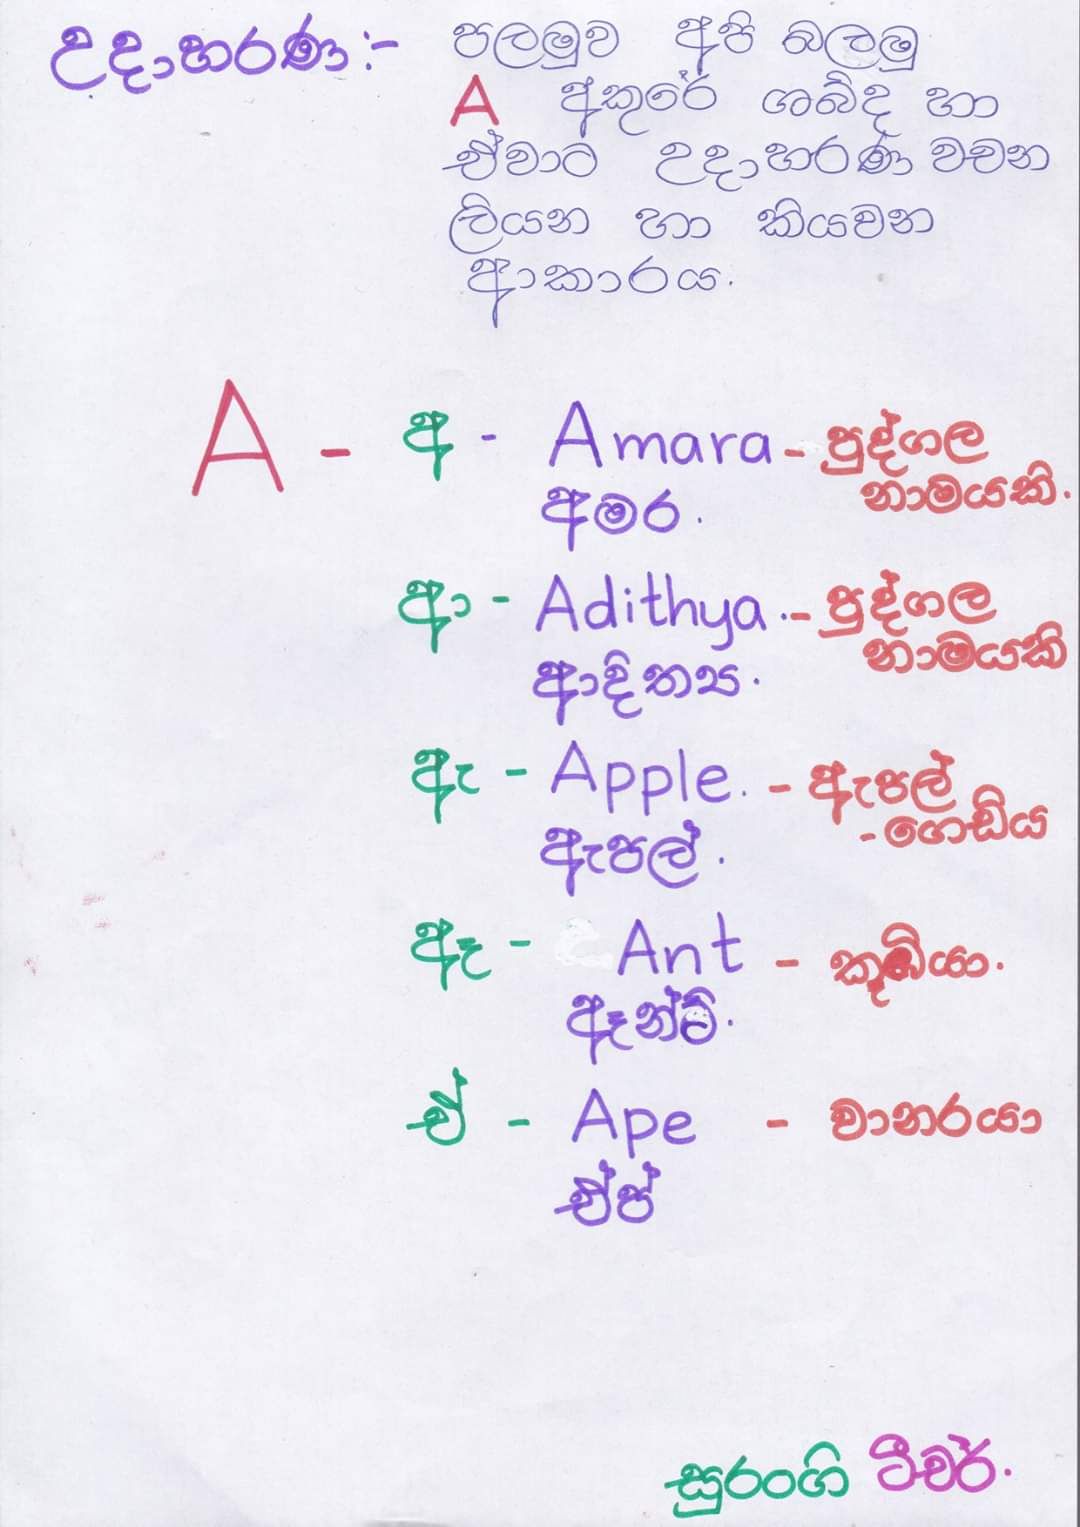 උදාහරණ :- පලමුව අපි බලමු
A අකුරේ ශබ්ද හා
ඒවාට උදාහරණ වචන
ලියන හා කියවන
ආකාරය.
A - අ - Amara - පුද්ගල
නාමයකි.
අමර.
ආ - Adithya. - පුද්ගල
නාමයකි
ආදිත්‍ය.
ඇ - Apple. - ඇපල්
- ගෙඩිය
ඇපල්.
ඈ - Ant - කූඹියා.
ඈන්ට්.
ඒ - Ape - වානරයා
ඒප්
සුරංගි ටීචර්.